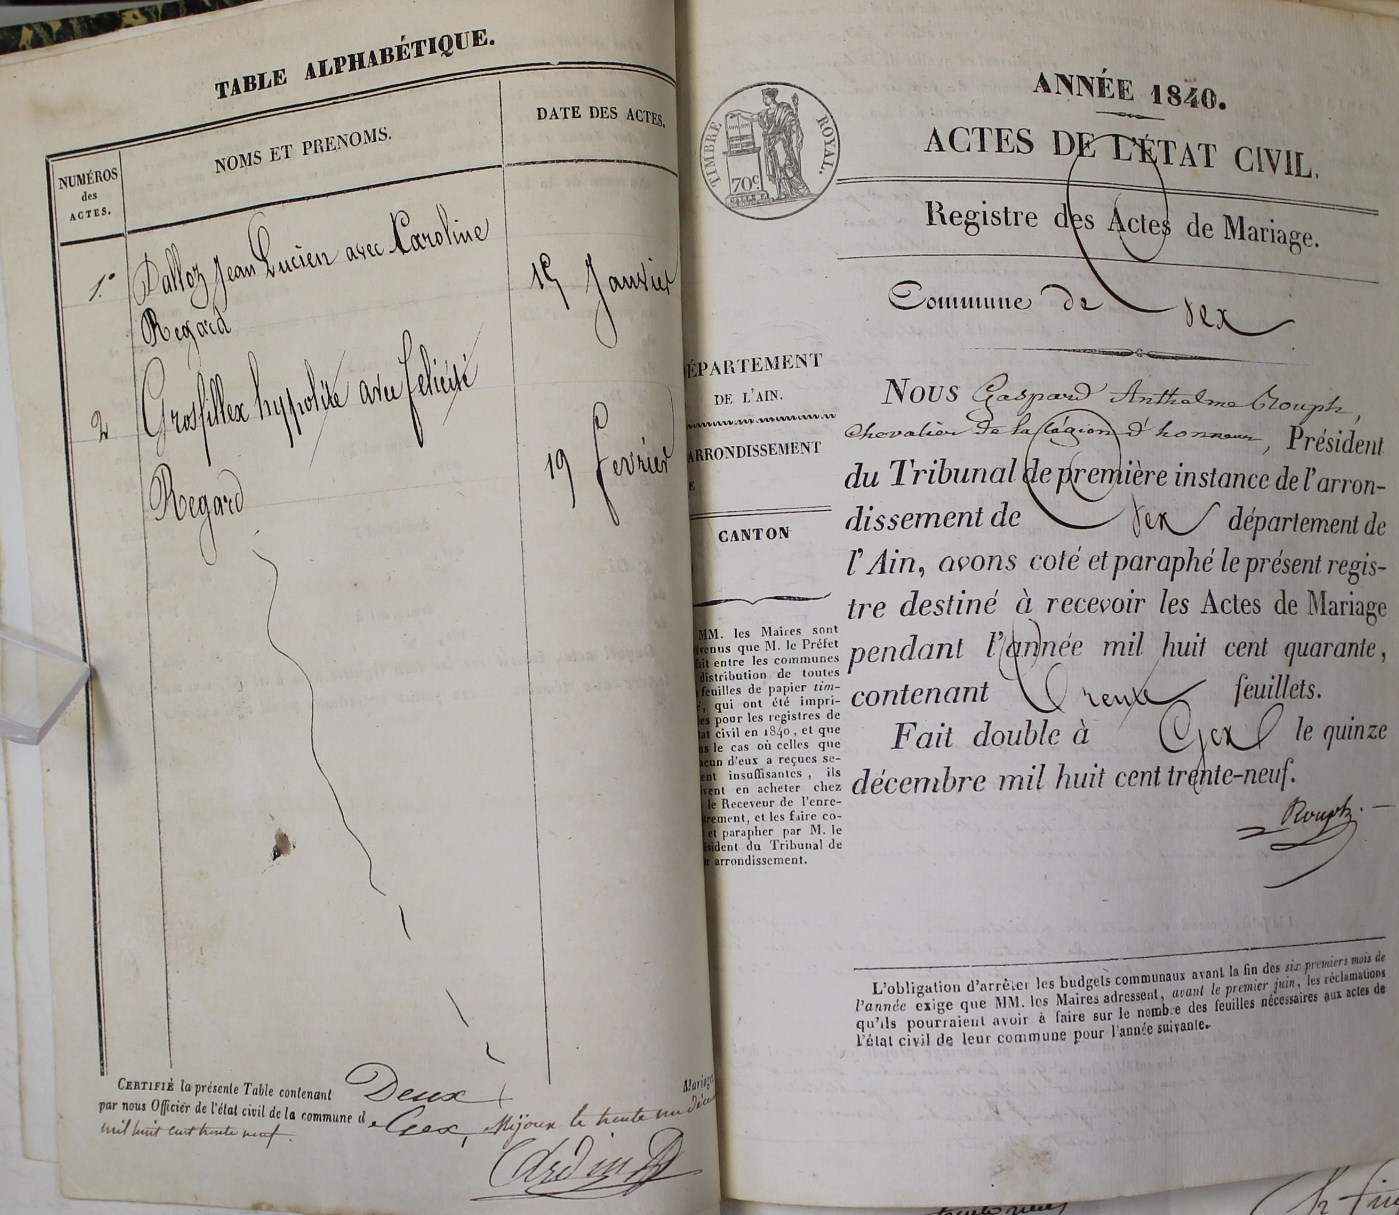 TABLE ALPHABÉTIQUE.
NUMÉROS
des
ACTES.
NOMS ET PRENOMS.
DATE DES ACTES.
1.° Dalloz Jean Lucien avec Caroline
Regard
15 Janvier
2 Grosfillex hyppolite avec felicité
Regard
19 fevrier
CERTIFIÉ la présente Table contenant Deux Mariages
par nous Officier de l'état civil de la commune de Gex, Mijoux le trente un
mil huit cent trente neuf.
TIMBRE ROYAL.
70c.
ANNÉE 1840.
ACTES DE L'ÉTAT CIVIL.
Registre des Actes de Mariage.
Commune de Gex
ÉPARTEMENT
DE L'AIN.
ARRONDISSEMENT
E
CANTON
MM. les Maires sont
venus que M. le Préfet
ait entre les communes
distribution de toutes
feuilles de papier tim-
, qui ont été impri-
es pour les registres de
at civil en 1840, et que
s le cas où celles que
acun d'eux a reçues se-
ent insuffisantes, ils
vent en acheter chez
le Receveur de l'enre-
trement, et les faire co-
et parapher par M. le
ésident du Tribunal de
r arrondissement.
Nous Gaspard Anthelme Rouph,
chevalier de la légion d'honneur, Président
du Tribunal de première instance de l'arron-
dissement de Gex département de
l'Ain, avons coté et paraphé le présent regis-
tre destiné à recevoir les Actes de Mariage
pendant l'année mil huit cent quarante,
contenant Trente feuillets.
Fait double à Gex le quinze
décembre mil huit cent trente-neuf.
Rouph.
L'obligation d'arrêter les budgets communaux avant la fin des six premiers mois de
l'année exige que MM. les Maires adressent, avant le premier juin, les réclamations
qu'ils pourraient avoir à faire sur le nombre des feuilles nécessaires aux actes de
l'état civil de leur commune pour l'année suivante.